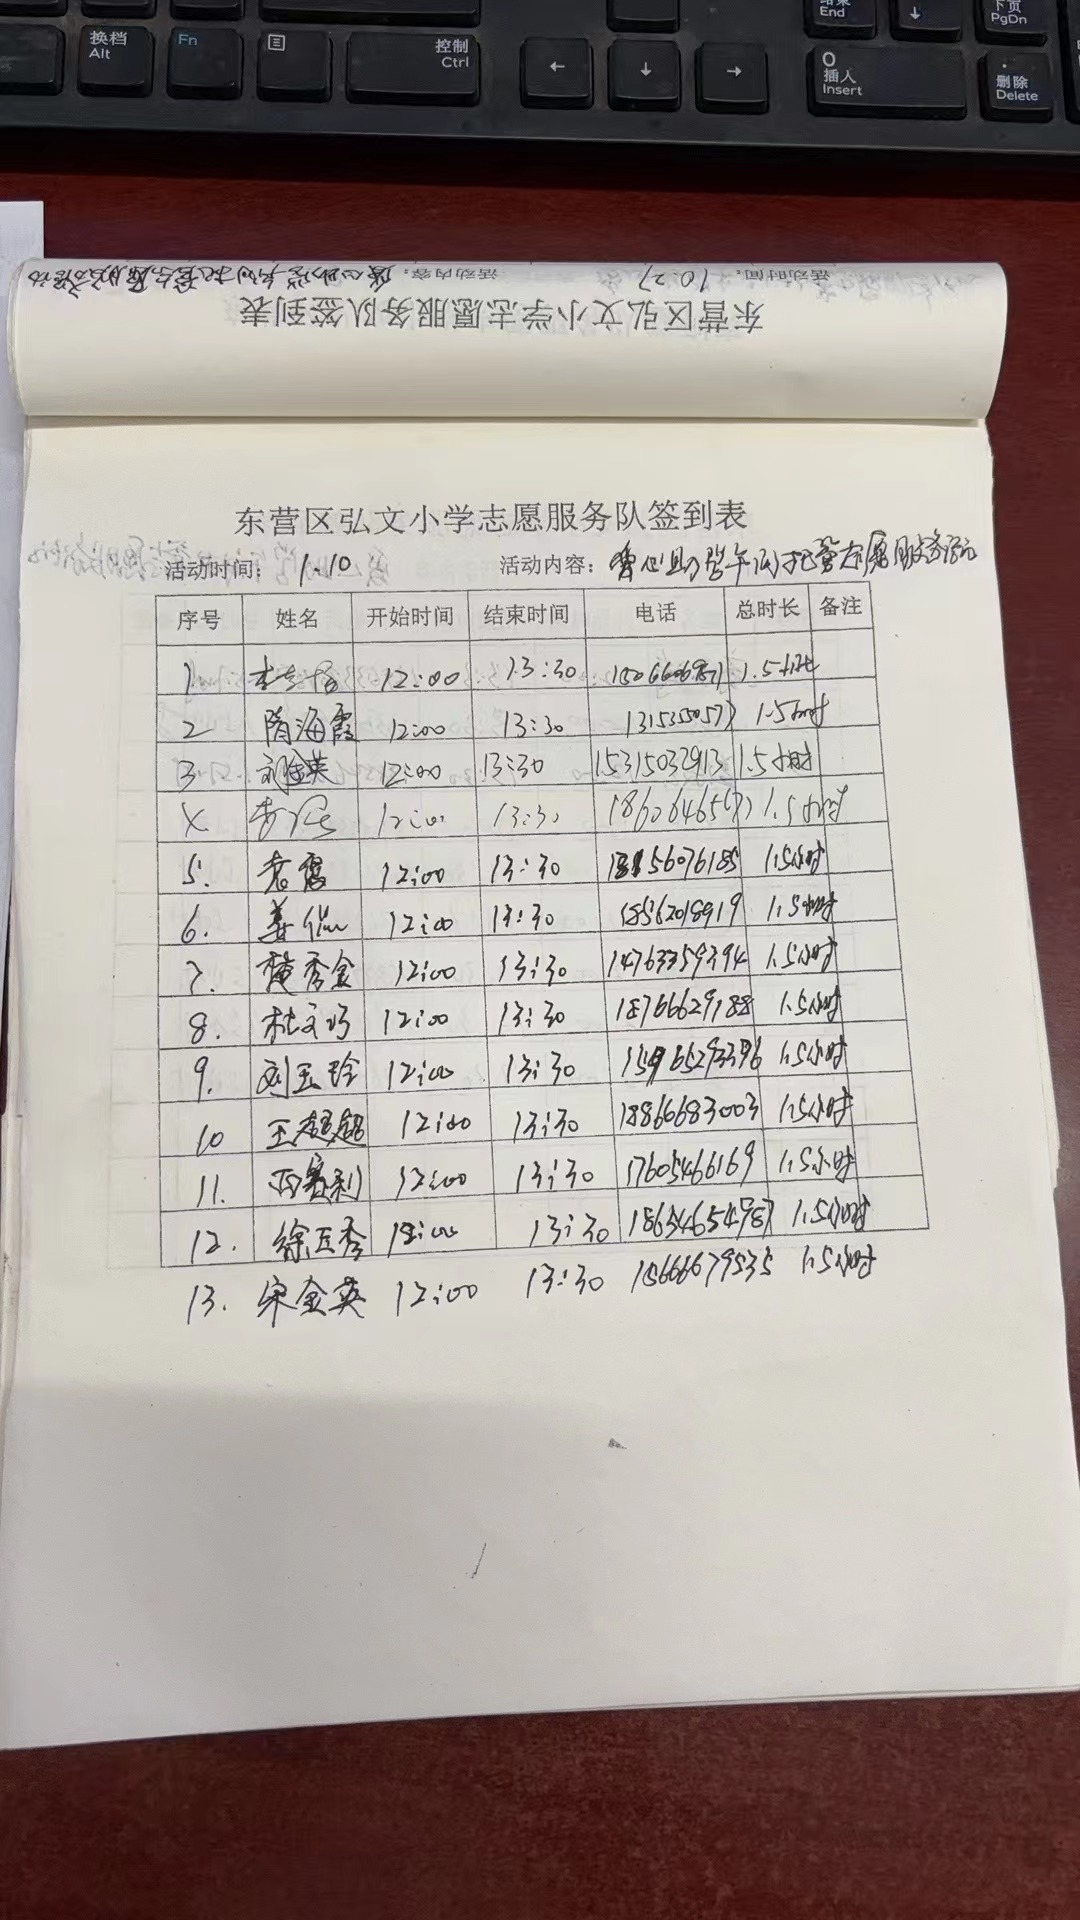 换档
Alt
Fn
控制
Ctrl
←
↓
→
End
↓
下页
PgDn
0
插入
Insert
.
删除
Delete
活动时间: 10.27 活动内容:
东营区弘文小学志愿服务队签到表
东营区弘文小学志愿服务队签到表
活动时间: 1.10 活动内容: 爱心助学午间托管志愿服务活动
序号 姓名 开始时间 结束时间 电话 总时长 备注
1 12:00 13:30 1.5小时
2 隋海霞 12:00 13:30 1.5小时
3 12:00 13:30 15315032913 1.5小时
4 12:00 13:30 1.5小时
5. 12:00 13:30 1.5小时
6. 姜 12:00 13:30 18562018919 1.5小时
7. 秀金 12:00 13:30 14763359394 1.5小时
8. 杜文巧 12:00 13:30 18766629188 1.5小时
9. 刘玉玲 12:00 13:30 1.5小时
10 王超超 12:00 13:30 18866683003 1.5小时
11. 12:00 13:30 17605466169 1.5小时
12. 徐玉秀 12:00 13:30 18634654987 1.5小时
13. 宋金英 12:00 13:30 15666679535 1.5小时